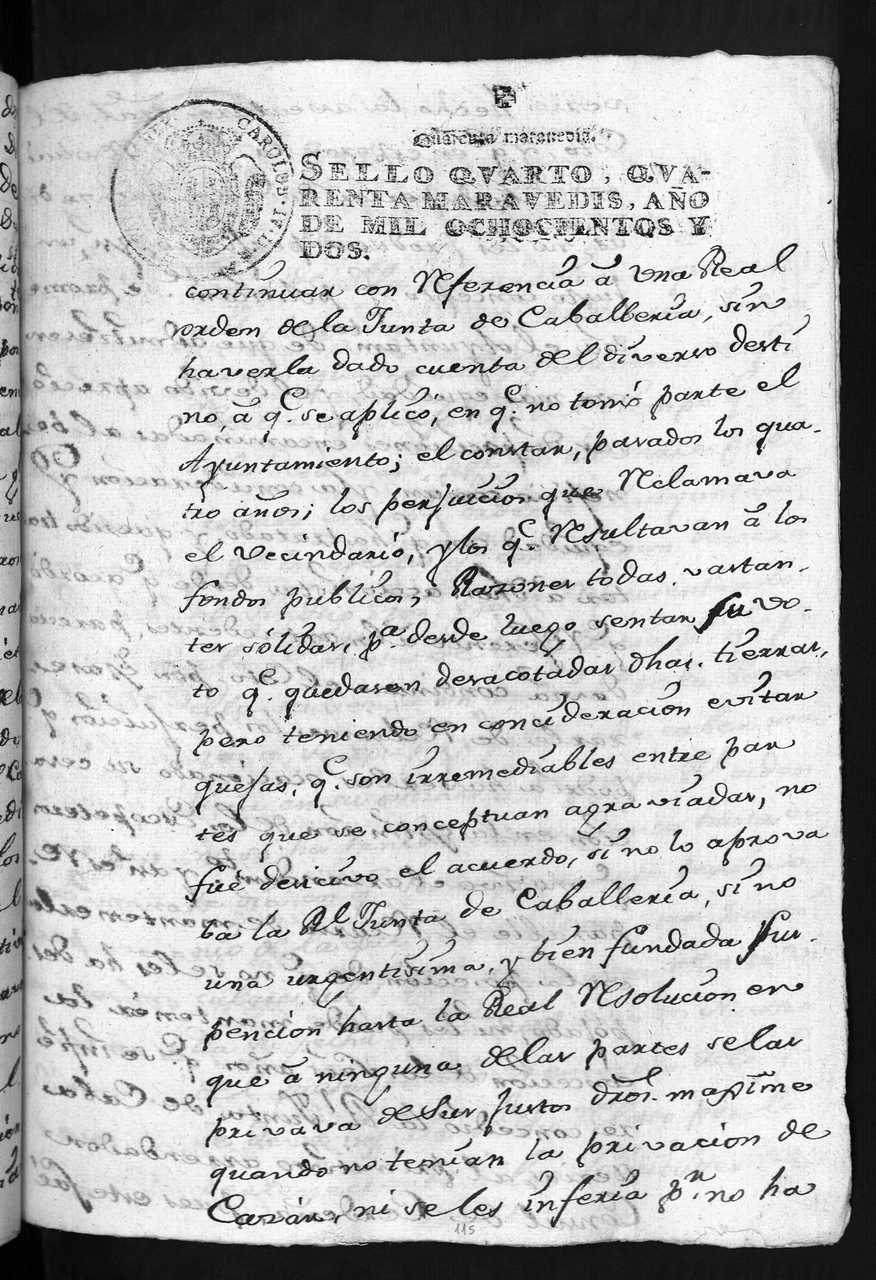 Quarenta maravedis.
SELLO QVARTO, QVA-
RENTA MARAVEDIS, AÑO
DE MIL OCHOCIENTOS Y
DOS.
CAROLUS. IV. D. G.
continuar con Referencia à una Real
orden de la Junta de Caballeria, sin
haverla dado cuenta del diverso desti
no, à q.e se aplicó, en q.e no tomó parte el
Ayuntamiento; el constar, pasados los qua-
tro años; los perjuicios que Reclamava
el Vecindario, y los q.e Resultavan à los
fondos publicos, Razones todas vastan-
tes sólidas, p.a desde luego sentar su vo-
to q.e quedasen desacotadas dhas. tierras,
pero teniendo en concideracion evitar
quejas, q.e son irremediables entre par
tes que se conceptuan agraviadas, no
fue decicivo el acuerdo, si no lo aprova
ba la R.l Junta de Caballeria, si no
una urgentisima, y bien fundada sus-
pencion hasta la Real Resolucion en
que à ninguna de las partes se las
privava de sus justos dros. maxime
quando no tenian la privacion de
Cavár, ni se les inferia p.r no ha
115